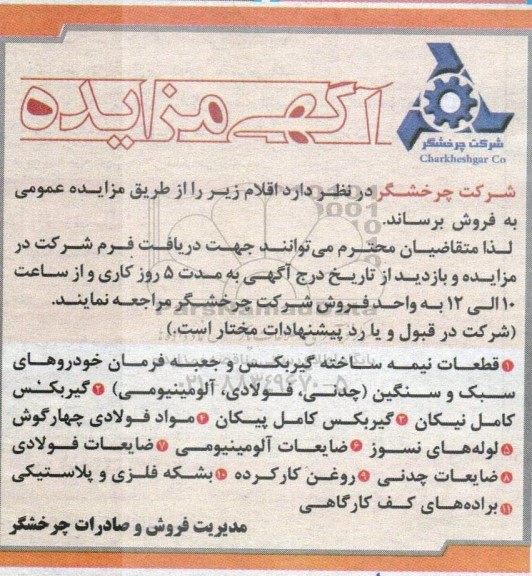 آگهی مزایده
شرکت چرخشگر
Charkheshgar Co
شرکت چرخشگر در نظر دارد اقلام زیر را از طریق مزایده عمومی
به فروش برساند.
لذا متقاضیان محترم می‌توانند جهت دریافت فرم شرکت در
مزایده و بازدید از تاریخ درج آگهی به مدت ۵ روز کاری و از ساعت
۱۰ الی ۱۲ به واحد فروش شرکت چرخشگر مراجعه نمایند.
(شرکت در قبول و یا رد پیشنهادات مختار است.)
۱ قطعات نیمه ساخته گیربکس و جعبه فرمان خودروهای
سبک و سنگین (چدنی، فولادی، آلومینیومی) ۲ گیربکس
کامل نیکان ۳ گیربکس کامل پیکان ۴ مواد فولادی چهارگوش
۵ لوله‌های نسوز ۶ ضایعات آلومینیومی ۷ ضایعات فولادی
۸ ضایعات چدنی ۹ روغن کارکرده ۱۰ بشکه فلزی و پلاستیکی
۱۱ براده‌های کف کارگاهی
مدیریت فروش و صادرات چرخشگر
ParsNamadData
۰۲۱-۸۸۳۴۹۶۷۰-۵